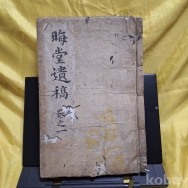 晦堂遺稿
卷之一
kobay